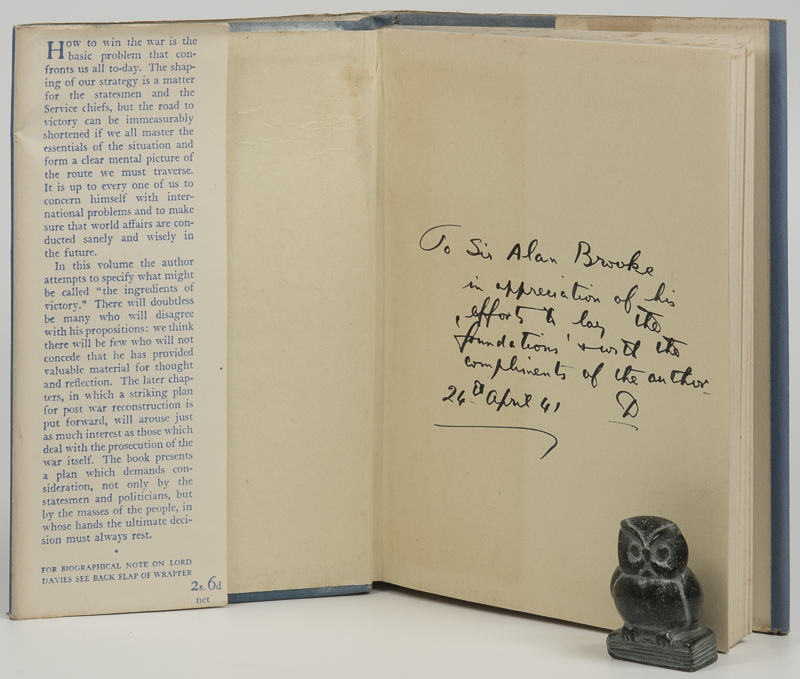 How to win the war is the
basic problem that con-
fronts us all to-day. The shap-
ing of our strategy is a matter
for the statesmen and the
Service chiefs, but the road to
victory can be immeasurably
shortened if we all master the
essentials of the situation and
form a clear mental picture of
the route we must traverse.
It is up to every one of us to
concern himself with inter-
national problems and to make
sure that world affairs are con-
ducted sanely and wisely in
the future.
In this volume the author
attempts to specify what might
be called "the ingredients of
victory." There will doubtless
be many who will disagree
with his propositions: we think
there will be few who will not
concede that he has provided
valuable material for thought
and reflection. The later chap-
ters, in which a striking plan
for post war reconstruction is
put forward, will arouse just
as much interest as those which
deal with the prosecution of the
war itself. The book presents
a plan which demands con-
sideration, not only by the
statesmen and politicians, but
by the masses of the people, in
whose hands the ultimate deci-
sion must always rest.
*
FOR BIOGRAPHICAL NOTE ON LORD
DAVIES SEE BACK FLAP OF WRAPPER
2s. 6d
net
To Sir Alan Brooke
in appreciation of his
efforts to lay 'the
foundations' & with the
compliments of the author
24th April 41 D